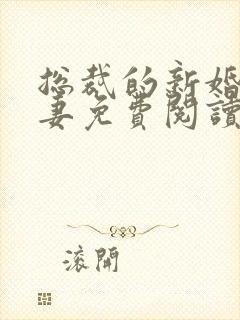 总裁的新婚
妻免費閱讀
滚開